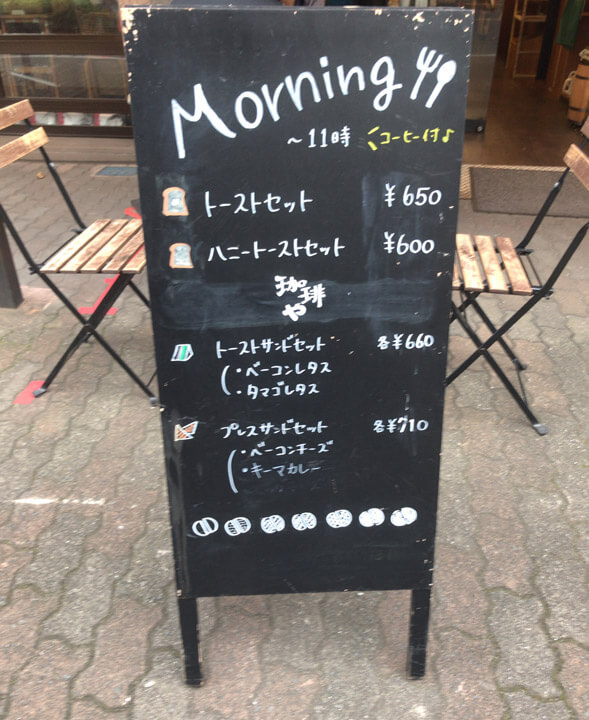 Morning
～11時 コーヒー付♪
トーストセット ¥650
ハニートーストセット ¥600
珈琲や
トーストサンドセット 各¥660
・ベーコンレタス
・タマゴレタス
プレスサンドセット 各¥710
・ベーコンチーズ
・キーマカレー